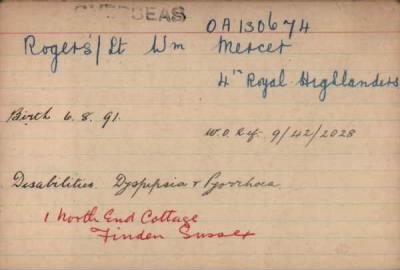 OVERSEAS
OA130674
Rogers/ Lt Wm Mercer
4th Royal Highlanders
Birth 6.8.91.
W.O. Ref. 9/42/2028
Disabilities. Dyspepsia & Pyorrhoea
1 North End Cottage
Finden Sussex